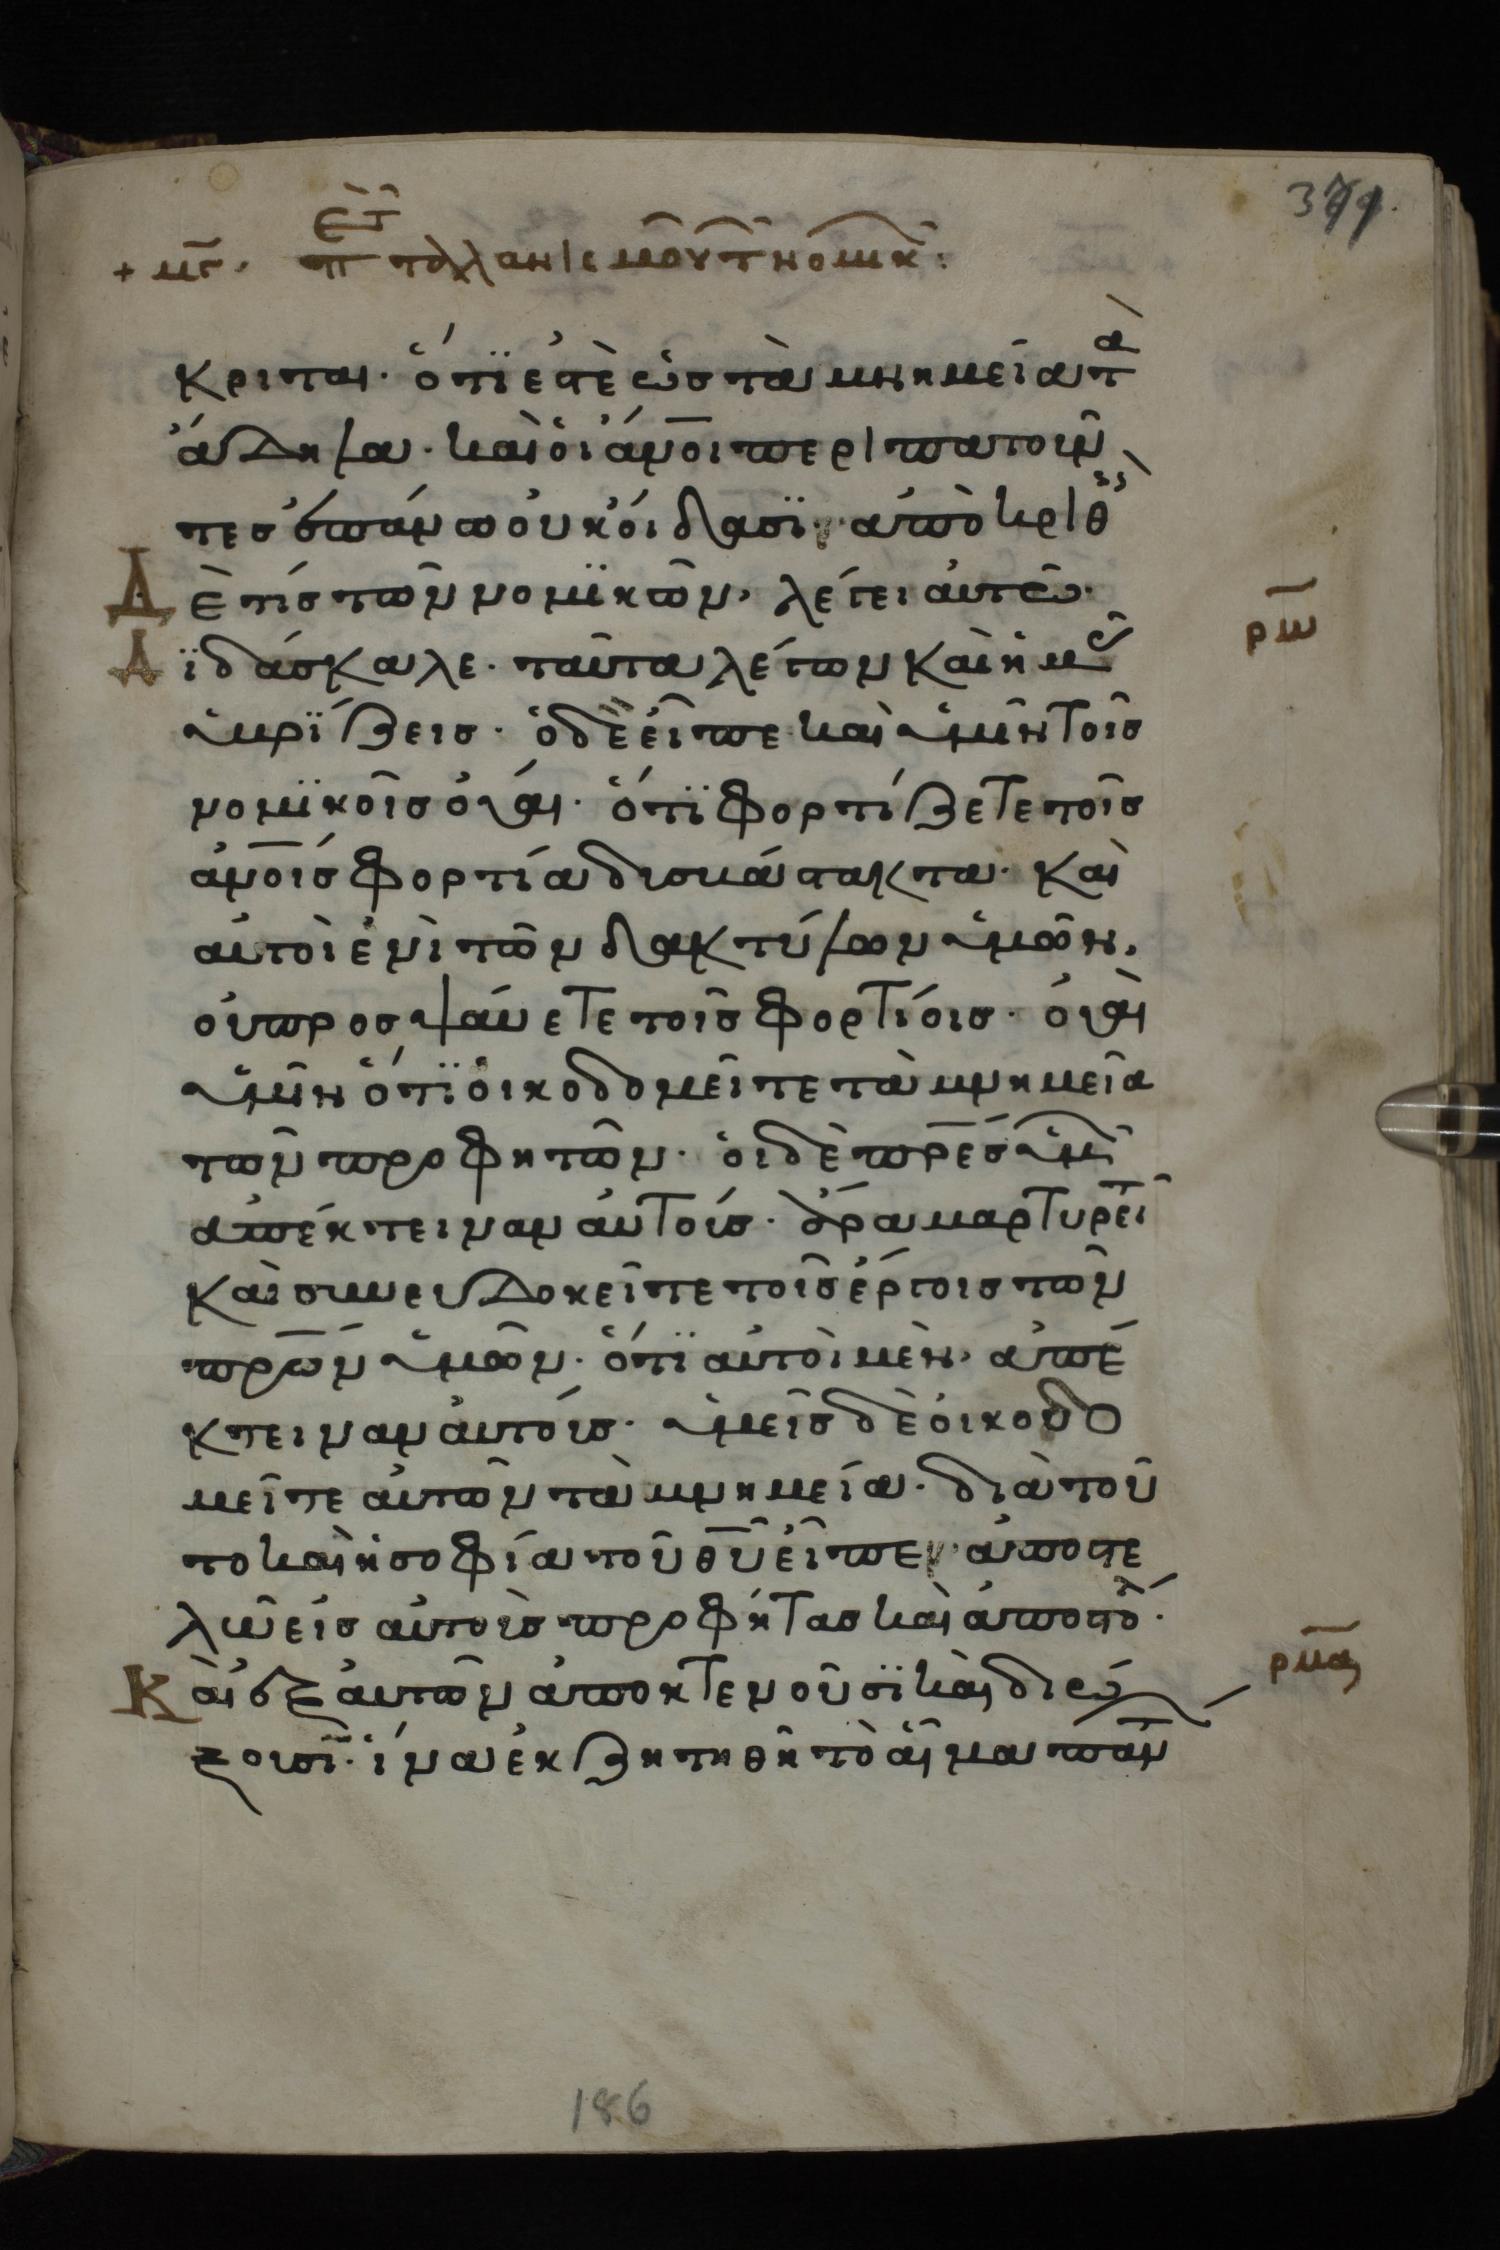 371.
+ μγ. π τολλανισμοῦ τ̑ νομικ̑:
κριται· ὅτι ἐστὲ ὡς τὰ μνημεία τὰ
ἄδηλα· καὶ οἱ ἄνοι περιπατοῦν
τες ἐπάνω οὐκ οἴδασϊ· ἀποκριθεὶς
Δὲ τίς τῶν νομϊκῶν, λέγει αὐτῶ·
Δϊδάσκαλε· ταῦτα λέγων καὶ ἡμᾶς
ὑβρϊζεις· ὁ δὲ εἶπε καὶ ὑμῖν τοῖς
νομϊκοῖς οὐαί· ὅτϊ φορτίζετε τοῖς
ἀνοις φορτία δυσβάστακτα· καὶ
αὐτοὶ ἑνὶ τῶν δακτύλων ὑμῶν,
οὐ προσψαύετε τοῖς φορτίοις· οὐαὶ
ὑμῖν ὅτϊ οἰκοδομεῖτε τὰ μνημεῖα
τῶν προφητῶν· οἱ δὲ πρες ὑμῶν
ἀπέκτειναν αὐτούς· ἄρα μαρτυρεῖτ
καὶ συνευδοκεῖτε τοῖς ἔργοις τῶν
πρων ὑμῶν· ὅτϊ αὐτοὶ μὲν, ἀπέ
κτειναν αὐτούς· ὑμεῖς δὲ οἰκοδο
μεῖτε αὐτῶν τὰ μνημεία· διὰ τοῦ
το καὶ ἡ σοφία τοῦ θυ εἶπε· ἀποστε
λῶ εἰς αὐτοὺς προφήτας καὶ ἀποστόλ·
Καὶ ἐξ αὐτῶν ἀποκτενοῦσϊ καὶ διώ
ξουσϊ· ἵνα ἐκζητηθῆ τὸ αἷμα πάν
ρμ
ρμα
186